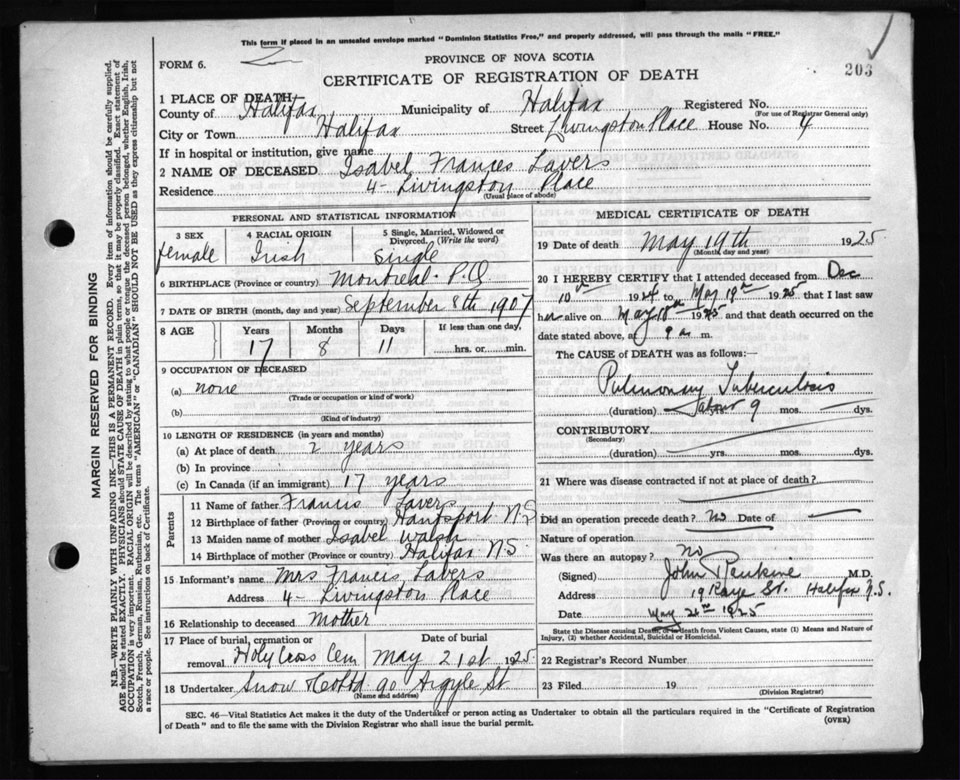 This form if placed in an unsealed envelope marked "Dominion Statistics Free," and properly addressed, will pass through the mails "FREE."
FORM 6.
PROVINCE OF NOVA SCOTIA
CERTIFICATE OF REGISTRATION OF DEATH
203
1 PLACE OF DEATH
County of Halifax Municipality of Halifax Registered No.
(For use of Registrar General only)
City or Town Halifax Street Livingston Place House No. 4
If in hospital or institution, give name
2 NAME OF DECEASED Isabel Frances Lavers
Residence 4- Livingston Place
(Usual place of abode)
PERSONAL AND STATISTICAL INFORMATION
3 SEX female
4 RACIAL ORIGIN Irish
5 Single, Married, Widowed or Divorced. (Write the word) Single
6 BIRTHPLACE (Province or country) Montreal P.Q
7 DATE OF BIRTH (month, day and year) September 8th 1907
8 AGE Years 17 Months 8 Days 11 If less than one day, hrs. or min.
9 OCCUPATION OF DECEASED
(a) none
(Trade or occupation or kind of work)
(b)
(Kind of industry)
10 LENGTH OF RESIDENCE (in years and months)
(a) At place of death 2 years
(b) In province
(c) In Canada (if an immigrant) 17 years
Parents
11 Name of father Francis Lavers
12 Birthplace of father (Province or country) Hantsport N.S
13 Maiden name of mother Isabel Walsh
14 Birthplace of mother (Province or country) Halifax N.S.
15 Informant's name Mrs Francis Lavers
Address 4- Livingston Place
16 Relationship to deceased Mother
17 Place of burial, cremation or removal Holy Cross Cem Date of burial May 21st 1925
18 Undertaker Snow & Co Ltd 90 Argyle St
(Name and address)
MEDICAL CERTIFICATE OF DEATH
19 Date of death May 19th 1925
(Month, day and year)
20 I HEREBY CERTIFY that I attended deceased from Dec
10th 1924 to May 19th 1925 that I last saw
her alive on May 18th 1925 and that death occurred on the
date stated above, at 9 a m.
The CAUSE OF DEATH was as follows:
Pulmonary Tuberculosis
(duration) about 9 mos. dys.
CONTRIBUTORY
(Secondary)
(duration) yrs. mos. dys.
21 Where was disease contracted if not at place of death?
Did an operation precede death? No Date of
Nature of operation
Was there an autopsy? No
(Signed) John Rankine M.D.
Address 19 St. Halifax N.S.
Date May 1925
State the Disease causing Death, or in death from Violent Causes, state (1) Means and Nature of Injury, (2) whether Accidental, Suicidal or Homicidal.
22 Registrar's Record Number
23 Filed 19
(Division Registrar)
SEC. 46—Vital Statistics Act makes it the duty of the Undertaker or person acting as Undertaker to obtain all the particulars required in the "Certificate of Registration
of Death" and to file the same with the Division Registrar who shall issue the burial permit.
(OVER)
MARGIN RESERVED FOR BINDING
N.B.—WRITE PLAINLY WITH UNFADING INK—THIS IS A PERMANENT RECORD. Every item of information should be carefully supplied.
AGE should be stated EXACTLY. PHYSICIANS should STATE CAUSE OF DEATH in plain terms, so that it may be properly classified. Exact statement of
OCCUPATION is very important. RACIAL ORIGIN will be described by stating to what people or tongue the deceased person belonged, whether English, Irish,
Scotch, French, German, Russian, Ruthenian, etc. The terms "AMERICAN" or "CANADIAN" SHOULD NOT BE USED as they express citizenship but not
a race or people. See instructions on back of Certificate.